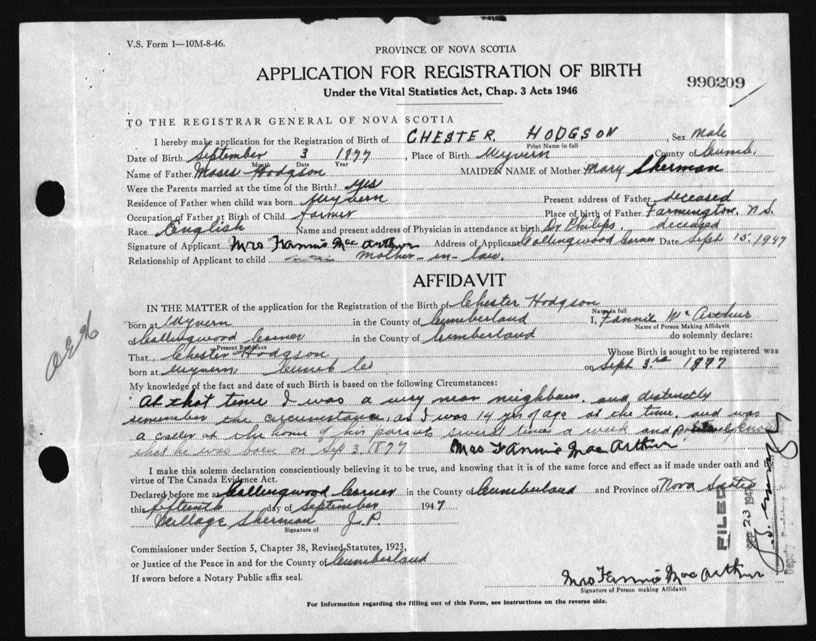 V.S. Form 1—10M-8-46.
PROVINCE OF NOVA SCOTIA
APPLICATION FOR REGISTRATION OF BIRTH
990209
Under the Vital Statistics Act, Chap. 3 Acts 1946
TO THE REGISTRAR GENERAL OF NOVA SCOTIA
I hereby make application for the Registration of Birth of CHESTER HODGSON, Sex Male
Print Name in full
Date of Birth September 3 1877, Place of Birth Wyvern County of Cumb.
Month Date Year
Name of Father Moses Hodgson MAIDEN NAME of Mother Mary Sherman
Were the Parents married at the time of the Birth? yes
Residence of Father when child was born Wyvern Present address of Father deceased
Occupation of Father at Birth of Child farmer Place of Birth of Father Farmington, N.S.
Race English Name and present address of Physician in attendance at birth Dr Philips, deceased
Signature of Applicant Mrs Fannie Mac Arthur Address of Applicant Collingwood Corner Date Sept 15, 1947
Relationship of Applicant to child mother-in-law.
AFFIDAVIT
IN THE MATTER of the application for the Registration of the Birth of Chester Hodgson
Name in full
born at Wyvern in the County of Cumberland I, Fannie Mc Arthur
Name of Person Making Affidavit
Collingwood Corner in the County of Cumberland do solemnly declare:
Present Residence
That Chester Hodgson Whose Birth is sought to be registered was
born at Wyvern Cumb Co on Sept 3rd 1877
My knowledge of the fact and date of such Birth is based on the following Circumstances:
At that time I was a very near neighbour, and distinctly
remember the circumstance, as I was 14 yrs of age at the time, and was
a caller at the home of his parents several times a week and
that he was born on Sep 3, 1877 Mrs Fannie Mac Arthur
I make this solemn declaration conscientiously believing it to be true, and knowing that it is of the same force and effect as if made under oath and
virtue of The Canada Evidence Act.
Declared before me at Collingwood Corner in the County of Cumberland and Province of Nova Scotia
this fifteenth day of September 1947
Sherman J.P.
Signature of
FILED
SEP 23 1947
Commissioner under Section 5, Chapter 38, Revised Statutes, 1923,
or Justice of the Peace in and for the County of Cumberland
If sworn before a Notary Public affix seal.
Mrs Fannie Mac Arthur
Signature of Person making Affidavit
For Information regarding the filling out of this Form, see instructions on the reverse side.